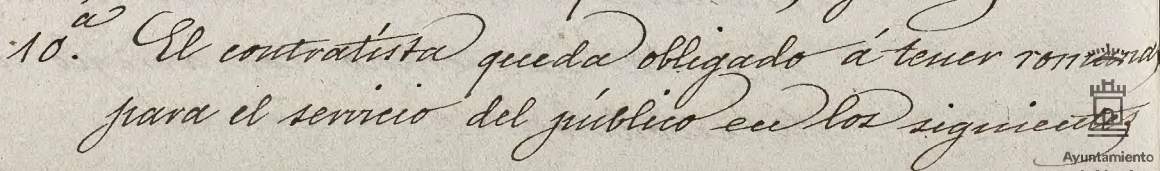 10.ª El contratista queda obligado á tener romana
para el servicio del público en los siguientes
Ayuntamiento